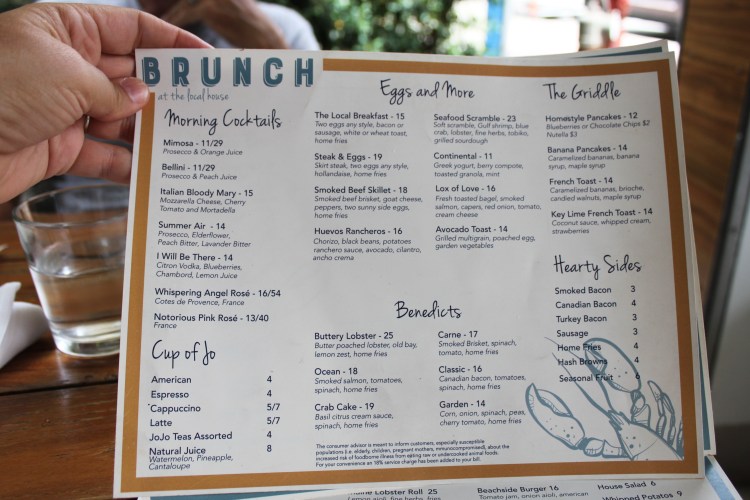 BRUNCH
at the local house
Morning Cocktails
Mimosa - 11/29
Prosecco & Orange Juice
Bellini - 11/29
Prosecco & Peach Juice
Italian Bloody Mary - 15
Mozzarella Cheese, Cherry
Tomato and Mortadella
Summer Air - 14
Prosecco, Elderflower,
Peach Bitter, Lavander Bitter
I Will Be There - 14
Citron Vodka, Blueberries,
Chambord, Lemon Juice
Whispering Angel Rosé - 16/54
Cotes de Provence, France
Notorious Pink Rosé - 13/40
France
Cup of Jo
American 4
Espresso 4
Cappuccino 5/7
Latte 5/7
JoJo Teas Assorted 4
Natural Juice 8
Watermelon, Pineapple,
Cantaloupe
Eggs and More
The Local Breakfast - 15
Two eggs any style, bacon or
sausage, white or wheat toast,
home fries
Steak & Eggs - 19
Skirt steak, two eggs any style,
hollandaise, home fries
Smoked Beef Skillet - 18
Smoked beef brisket, goat cheese,
peppers, two sunny side eggs,
home fries
Huevos Rancheros - 16
Chorizo, black beans, potatoes
ranchero sauce, avocado, cilantro,
ancho crema
Seafood Scramble - 23
Soft scramble, Gulf shrimp, blue
crab, lobster, fine herbs, tobiko,
grilled sourdough
Continental - 11
Greek yogurt, berry compote,
toasted granola, mint
Lox of Love - 16
Fresh toasted bagel, smoked
salmon, capers, red onion, tomato,
cream cheese
Avocado Toast - 14
Grilled multigrain, poached egg,
garden vegetables
Benedicts
Buttery Lobster - 25
Butter poached lobster, old bay,
lemon zest, home fries
Ocean - 18
Smoked salmon, tomatoes,
spinach, home fries
Crab Cake - 19
Basil citrus cream sauce,
spinach, home fries
Carne - 17
Smoked Brisket, spinach,
tomato, home fries
Classic - 16
Canadian bacon, tomatoes,
spinach, home fries
Garden - 14
Corn, onion, spinach, peas,
cherry tomato, home fries
The consumer advisor is meant to inform customers, especially susceptible
populations (i.e. elderly, children, pregnant mothers, immunocompromised), about the
increased risk of foodborne illness from eating raw or undercooked animal foods.
For your convenience an 18% service charge has been added to your bill.
The Griddle
Homestyle Pancakes - 12
Blueberries or Chocolate Chips $2
Nutella $3
Banana Pancakes - 14
Caramelized bananas, banana
syrup, maple syrup
French Toast - 14
Caramelized bananas, brioche,
candied walnuts, maple syrup
Key Lime French Toast - 14
Coconut sauce, whipped cream,
strawberries
Hearty Sides
Smoked Bacon 3
Canadian Bacon 4
Turkey Bacon 3
Sausage 3
Home Fries 4
Hash Browns 4
Seasonal Fruit 6
Lobster Roll 25
Beachside Burger 16
Tomato jam, onion aioli, american
House Salad 6
Whipped Potatoes 9